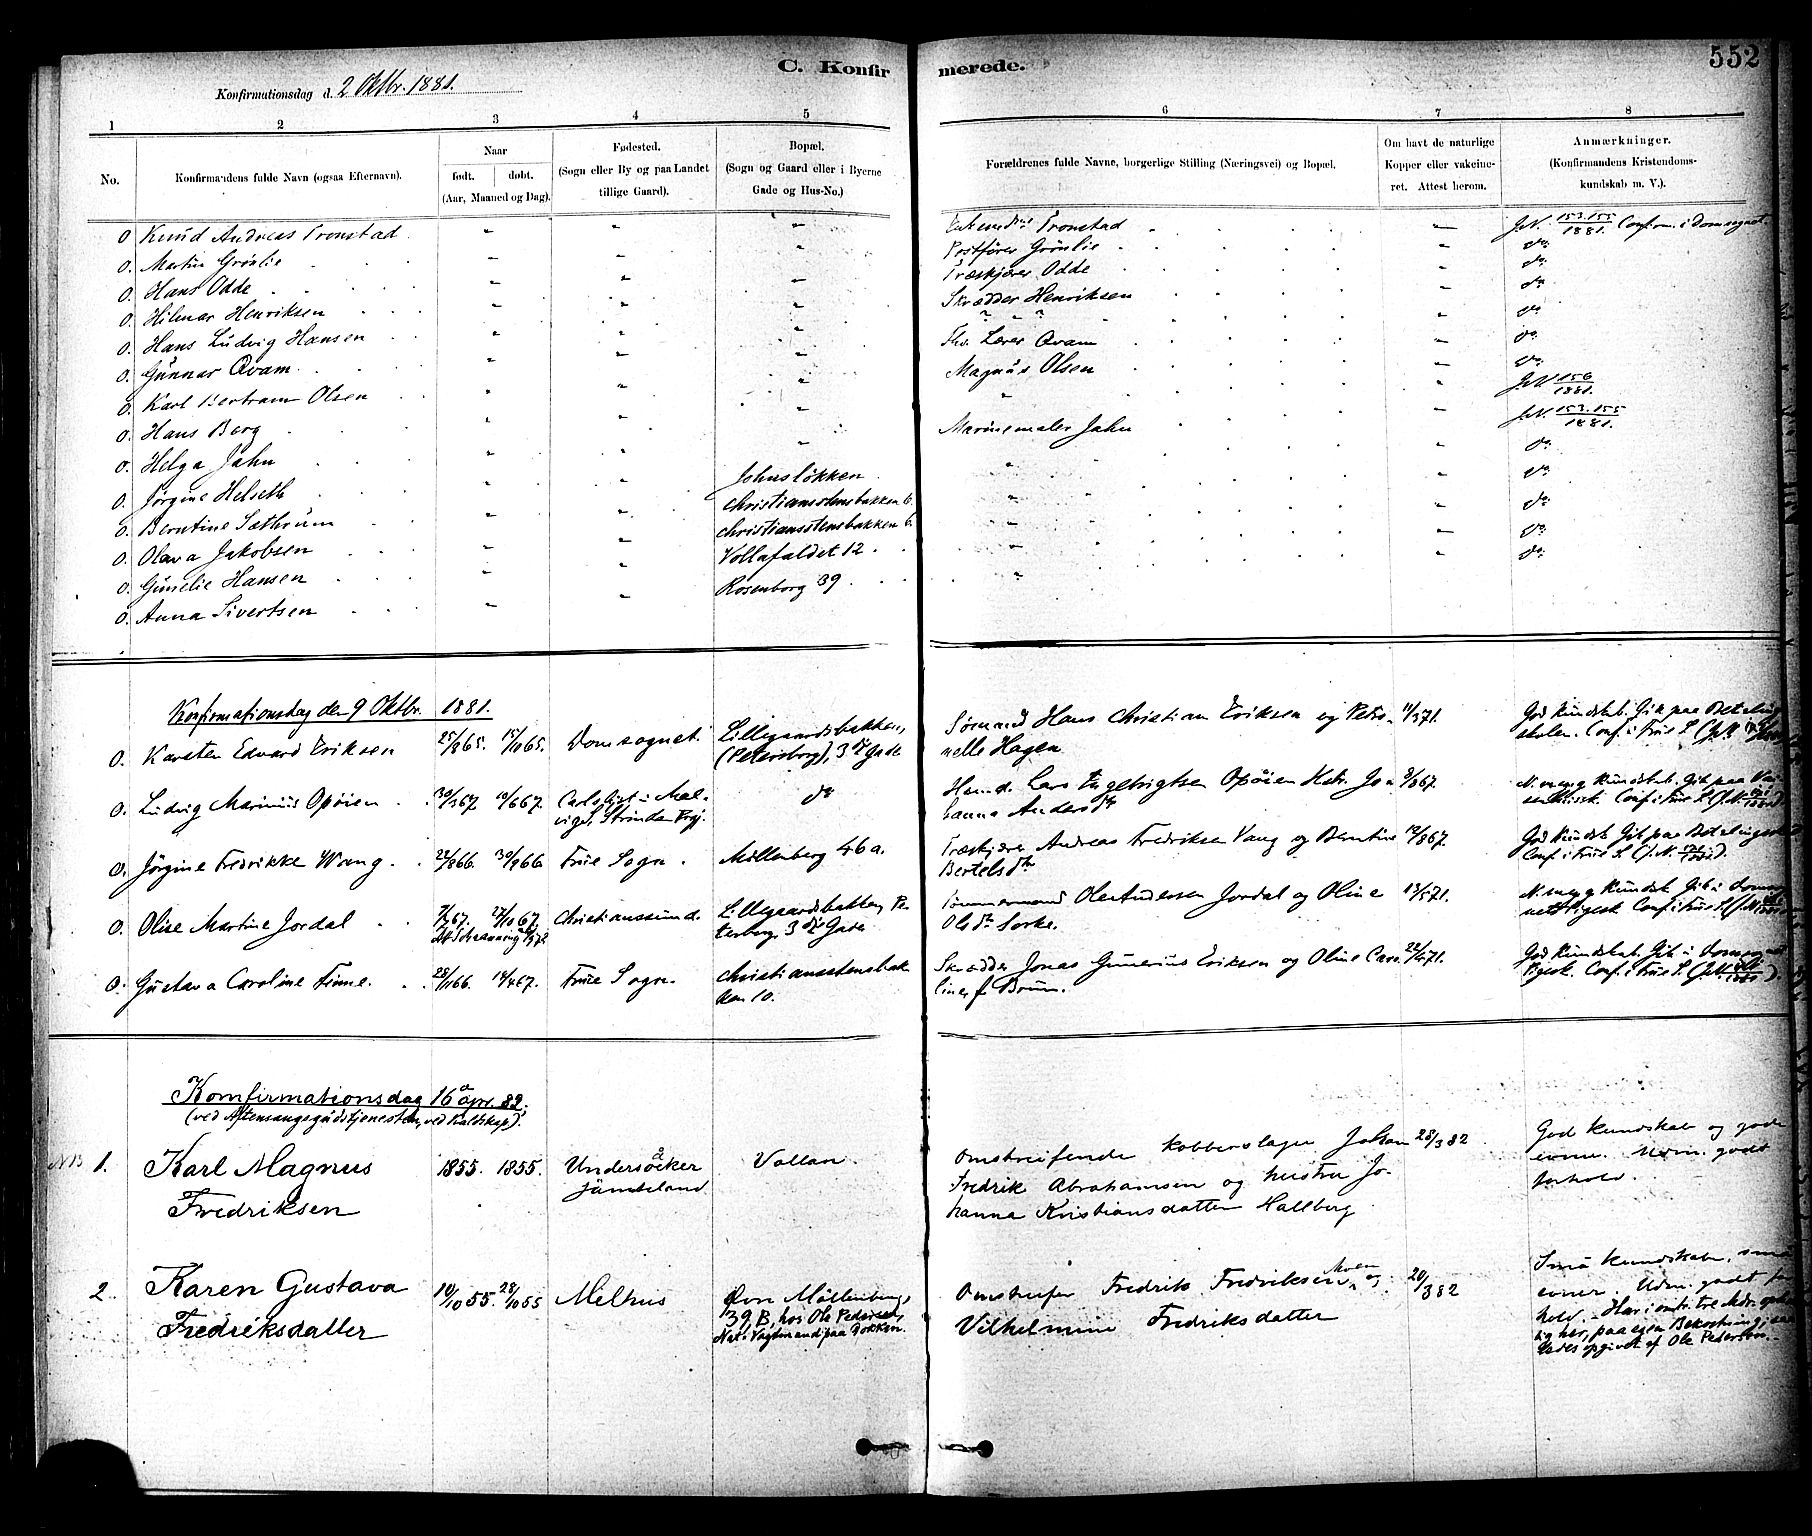 C. Konfirmerede.
552
Konfirmationsdag d. 2 Oktbr. 1881.
1 2 3 4 5 6 7 8
No.
Konfirmandens fulde Navn (ogsaa Efternavn).
Naar
født. døbt.
(Aar, Maaned og Dag).
Fødested.
(Sogn eller By og paa Landet
tillige Gaard).
Bopæl.
(Sogn og Gaard eller i Byerne
Gade og Hus-No.)
Forældrenes fulde Navne, borgerlige Stilling (Næringsvei) og Bopæl.
Om havt de naturlige
Kopper eller vakcine-
ret. Attest herom.
Anmærkninger.
(Konfirmandens Kristendoms-
kundskab m. V.).
0 Knud Andreas Tronstad Tronstad J.N. 153.155/1881. Confirm. i Domsognet.
0. Martin Grønlie Postfører Grønlie do
0. Hans Odde Træskjærer Odde do
0. Hilmar Henriksen Skrædder Henriksen do
0. Hans Ludvig Hansen " " " do
0. Gunnar Qvam Lærer Qvam do
0. Karl Bertram Olsen Magnus Olsen do
0. Hans Berg " J.N. 156/1881.
0. Helga Jahn Marinemaler Jahn J.N. 153.155/1881.
0. Jørgine Helseth Johnsløkken do
0. Berntine Sæthrum Christiansstensbakken 6. do
0. Olava Jakobsen Christiansstensbakken 6. do
0. Gunelie Hansen Vollafaldet 12 do
0. Anna Sivertsen Rosenborg 39 do
Konfirmationsdag den 9 Oktbr. 1881.
0. Karsten Edvard Eriksen 25/8 65. 15/10 65. Domsognet Lillegaardsbakken,
(Petersborg), 3die Gade
Sømand Hans Christian Eriksen og Petro-
nelle Hagen 11/5 71.
God Kundskab. Gik paa Betalings
skolen. Conf. i Frue S.
0. Ludvig Marinius Opøien 30/3 67. 10/6 67. Carlslyst i Mal-
viger, Strinden Prgj. do
Husmd. Lars Engebrigtsen Opøien Hstr. Jo-
hanna Andersdtr 9/9 67.
N. meng Kundskab. Gik paa Vai
Conf. i Frue S.
0. Jørgine Fredrikke Wang 22/8 66. 30/9 66. Frue Sogn. Møllenberg 46 a.
Træskjærer Andreas Fredriksen Vang og Berntine
Bertelsdtr 12/8 67.
God Kundsk. Gik paa Betalingssk
Conf. i Frue S.
0. Oline Martine Jordal 7/7 67. 27/10 67. Christianssund. Lillegaardsbakken, Pe-
tersborg, 3die Gade
Tømmermand Ole Andersen Jordal og Oline
Olsdtr Sorke. 13/5 71.
N. meng Kundsk. Gik i Domsog
nets Pigesk. Conf. i Frue S.
0. Gustava Caroline Finne 28/1 66. 14/4 67. Frue Sogn. Christiansstensbak
ken 10.
Skrædder Jonas Gunerius Eriksen og Oline Caro
line f. Bruun. 22/5 71.
God Kundskab. Gik i Domsognets
Pigesk. Conf. i Frue S.
Konfirmationsdag 16 apr. 82.
(ved Aftensangsgudstjenesten, ved Kaldskap.).
NB 1. Karl Magnus 1855. 1855. Undersåker Vollan.
Fredriksen Jämteland
Omstreifende kobberslager Johan 28/3 82
Fredrik Abrahamsen og hustru Jo-
hanna Kristiansdatter Hallberg.
God kundskab og gode
evner. Udm. godt
forhold.
2. Karen Gustava 10/10 55. 28/10 55 Melhus Øvre Møllenberg,
Fredriksdatter 39 B, hos Ole Pedersen,
Nat-Vagtmand paa Dokken.
Omstreifer Fredrik Fredriksen og 20/3 82
Vilhelmine Fredriksdatter
Små kundskabe, små
evner. Udm. godt for
hold. Har i omtr. tre Mdr. opholdt
sig her, paa egen Bekostning, saa-
ledes opgivet af Ole Pedersen.